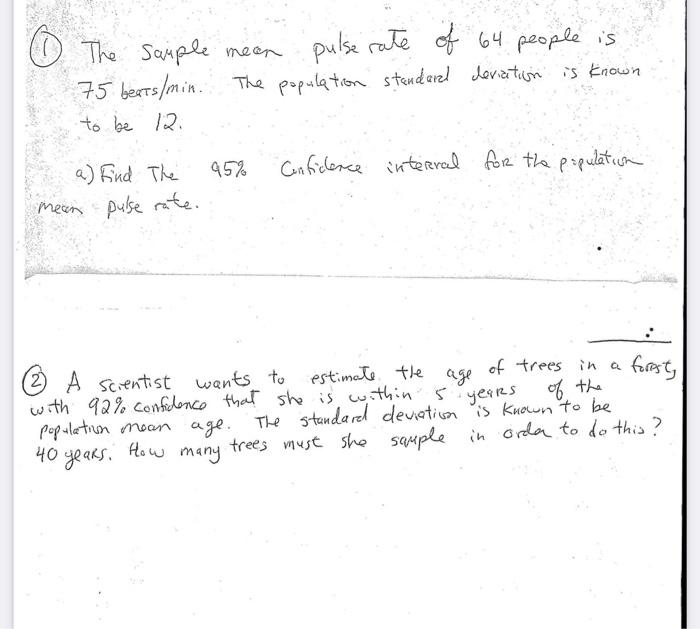 ① The Sample mean pulse rate of 64 people is
75 beats/min. The population standard deviation is known
to be 12.
a) Find The 95% Confidence interval for the population
mean pulse rate.
② A scientist wants to estimate the age of trees in a forest,
with 92% confidence that she is within 5 years of the
population mean age. The standard deviation is known to be
40 years. How many trees must she sample in order to do this?